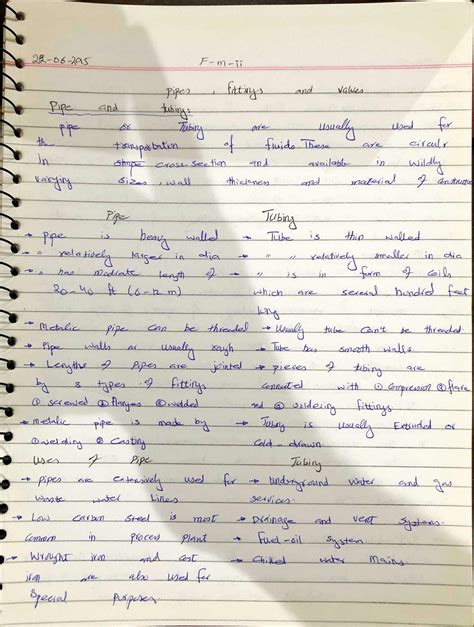 22-06-2015
F-m-ii
pipes, fittings and valves
Pipe and tubing:
pipe or Tubing are usually used for
the transportation of fluids. These are circulr
in shape cross-section and available in Wildly
varying sizes, wall thickness and material of construction
Pipe
Tubing
→ pipe is heavy walled
→ Tube is thin walled
→ " relatively larger in dia
→ " " relatively smaller in dia
→ " has modrate length of
20-40 ft (6-12 m)
→ " is in form of coils
which are several hundred feet
long
→ Metalic pipe can be threaded
→ Usually tube can't be threaded.
→ Pipe walls ar usually rough
→ Tube has smooth walls
→ Lengths of pipes are jointed
by 3 types of fittings
① screwed ② flanges ③ welded
→ pieces of tubing are
connected with ① compression ② flare
and ③ soldering fittings
→ metalic pipe is made by
① welding ② Casting
→ Tubing is usually Extruded or
Cold-drawn.
Uses of Pipe
Tubing
→ pipes are extensively used for
waste water lines
→ Underground water and gas
services.
→ Low carbon steel is most
common in process plant
→ Drainage and vent systems.
→ Fuel-oil system.
→ Wrought iron and cast
iron are also used for
Special purposes.
→ Chilled water mains.